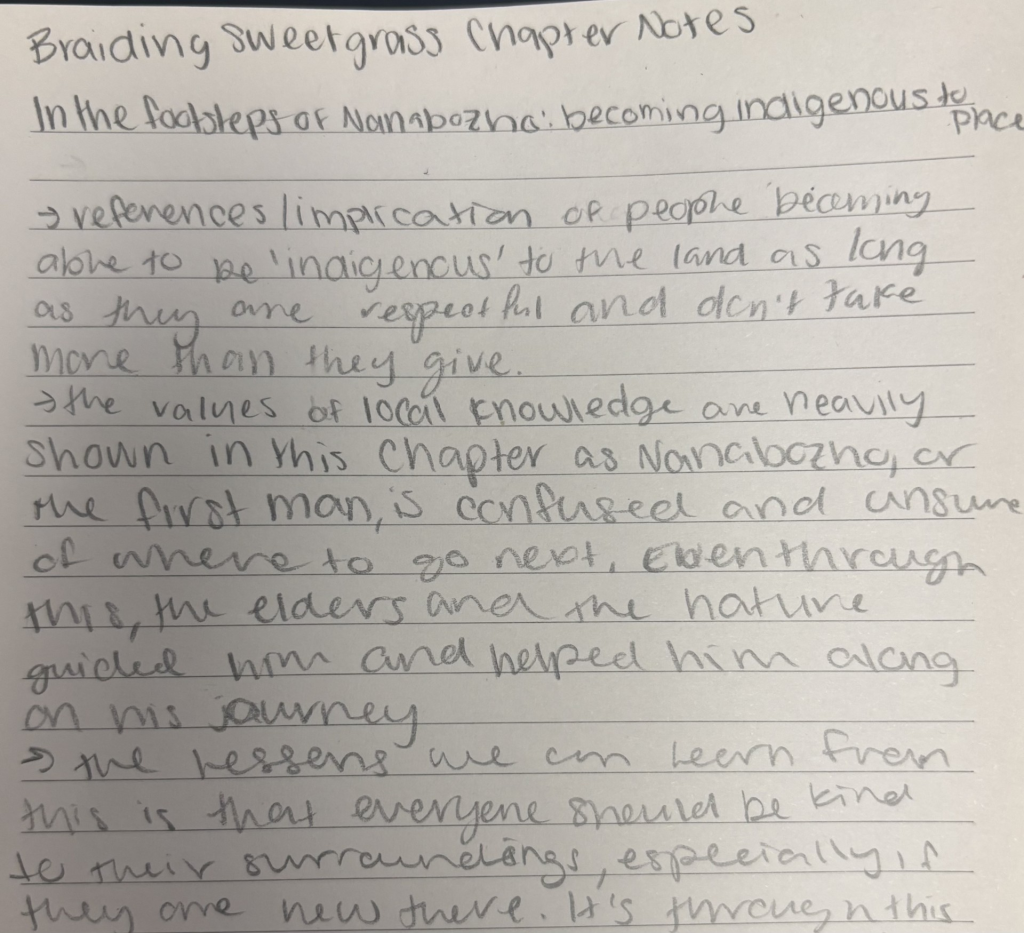 Braiding Sweetgrass Chapter Notes
In the footsteps of Nanabozho: becoming indigenous to
place
→ references/implication of people becoming
able to be 'indigenous' to the land as long
as they are respectful and don't take
more than they give.
→ the values of local knowledge are heavily
shown in this chapter as Nanabozho, or
the first man, is confused and unsure
of where to go next. Even through
this, the elders and the nature
guided him and helped him along
on his journey
→ the lessons we can learn from
this is that everyone should be kind
to their surroundings, especially if
they are new there. It's through this